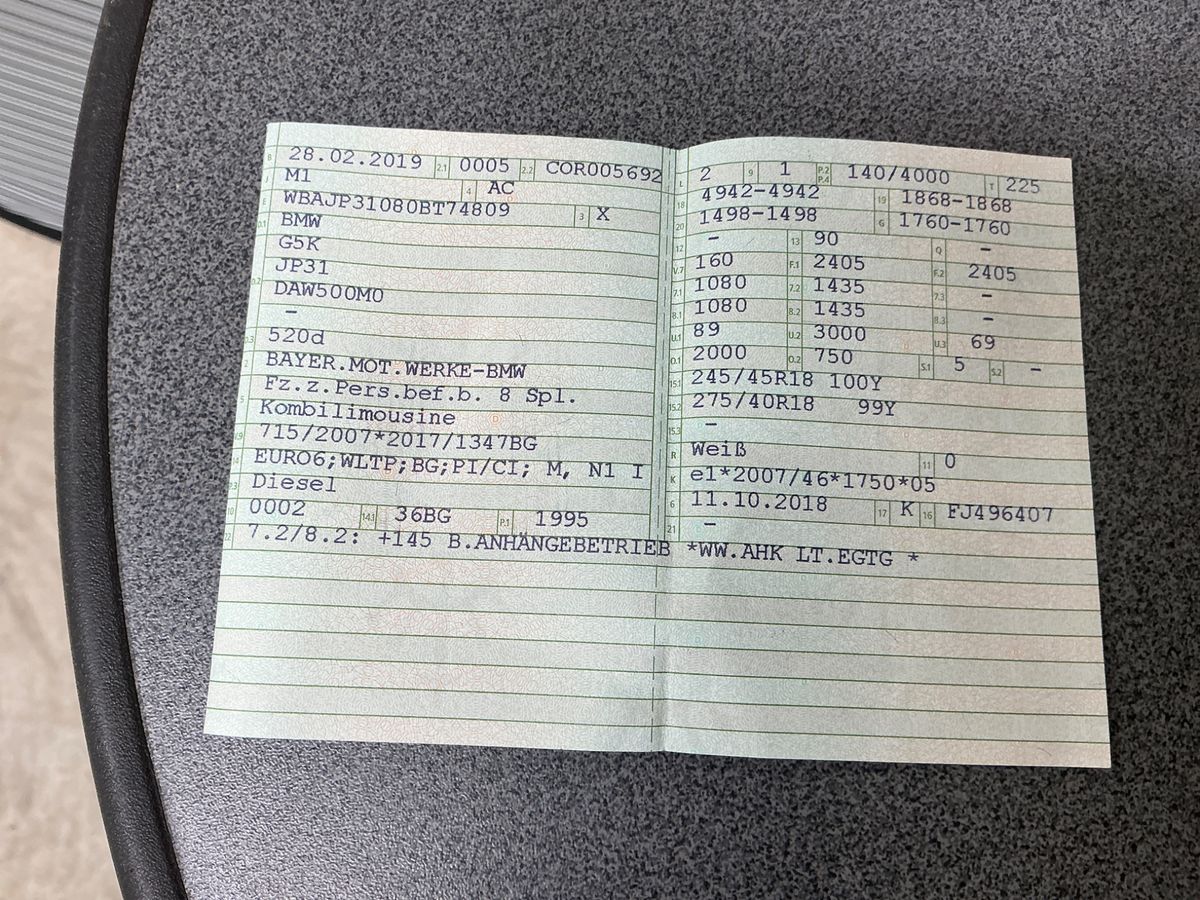 B 28.02.2019 2.1 0005 2.2 COR005692
J M1 4 AC
E WBAJP31080BT74809 3 X
D.1 BMW
G5K
D.2 JP31
DAW500M0
–
D.3 520d
2 BAYER.MOT.WERKE-BMW
Fz.z.Pers.bef.b. 8 Spl.
5 Kombilimousine
V.9 715/2007*2017/1347BG
EURO6;WLTP;BG;PI/CI; M, N1 I
P.3 Diesel
10 0002 14.1 36BG P.1 1995
22 7.2/8.2: +145 B.ANHÄNGEBETRIEB *WW.AHK LT.EGTG *
L 2 9 1 P.2 P.4 140/4000 T 225
18 4942-4942 19 1868-1868
20 1498-1498 G 1760-1760
12 – 13 90 Q –
V.7 160 F.1 2405 F.2 2405
7.1 1080 7.2 1435 7.3 –
8.1 1080 8.2 1435 8.3 –
U.1 89 U.2 3000 U.3 69
O.1 2000 O.2 750 S.1 5 S.2 –
15.1 245/45R18 100Y
15.2 275/40R18 99Y
15.3 –
R Weiß 11 0
K e1*2007/46*1750*05
6 11.10.2018 17 K 16 FJ496407
21 –